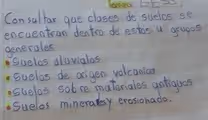 Tarea
Consultar que clases de suelos se
encuentran dentro de estos u grupos
generales
• Suelos aluviales
• Suelos de origen volcanico
• Suelos sobre materiales antiguos
• Suelos minerales y erosionado.